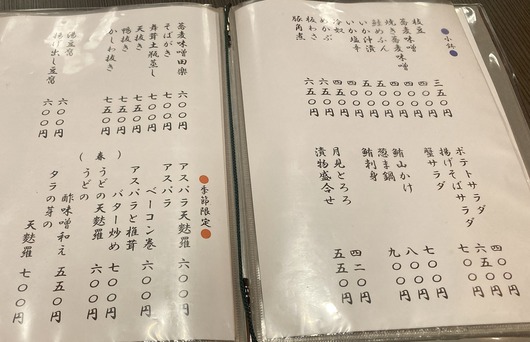 小鉢
枝豆 三五〇円
蕎麦味噌 四〇〇円
焼き蕎麦味噌 四〇〇円
鮭めふん 五〇〇円
いか沖漬 五〇〇円
いか塩辛
冷奴
めかぶ
板わさ
豚角煮
ポテトサラダ 四〇〇円
揚げそばサラダ 六五〇円
蟹サラダ 七〇〇円
鮪山かけ 七〇〇円
葱ま鍋 八〇〇円
鮪刺身 九〇〇円
月見とろろ 四二〇円
漬物盛合せ 五五〇円
蕎麦味噌田楽 六〇〇円
そばがき 七〇〇円
舞茸土瓶蒸し 七〇〇円
天抜き
鴨抜き 七五〇円
かしわ抜き 七五〇円
湯豆腐 六〇〇円
揚げ出し豆腐 六〇〇円
季節限定
アスパラ天麩羅 六〇〇円
アスパラ
ベーコン巻 六〇〇円
アスパラと椎茸
バター炒め 七〇〇円
(春)
うどの天麩羅 六〇〇円
うどの
酢味噌和え 五五〇円
タラの芽の
天麩羅 七〇〇円